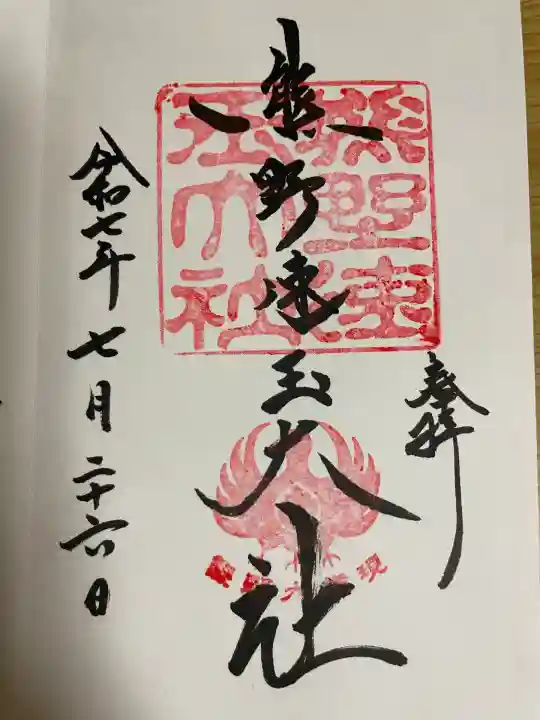 奉拝
熊野速玉大社
令和七年七月二十六日
熊野速
玉大社